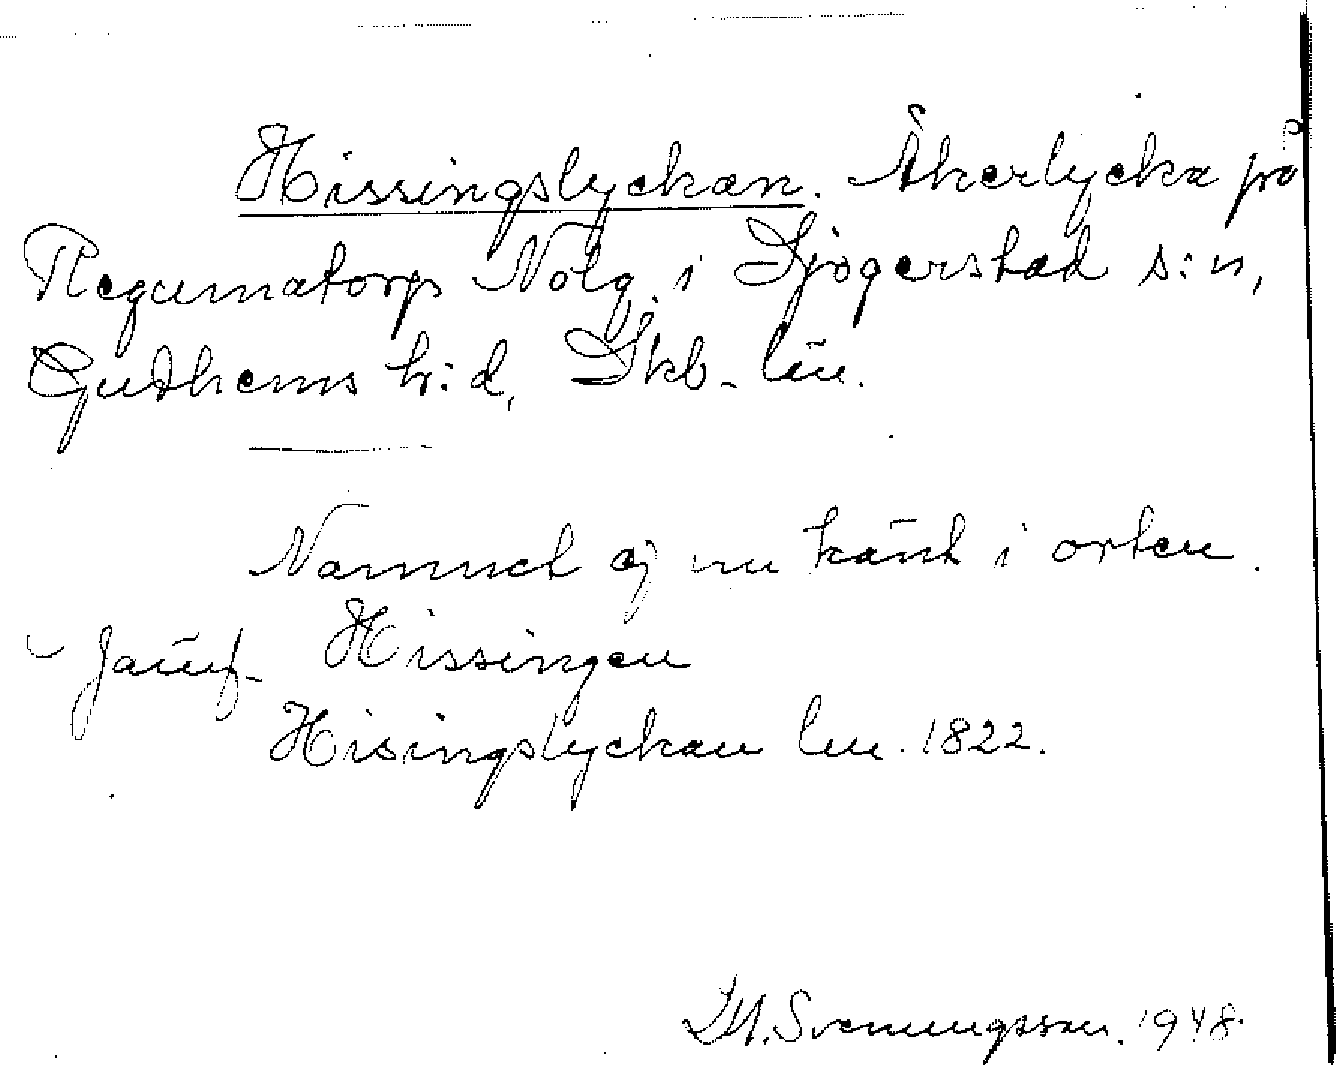 Hissingslyckan. Åkerlycka på
Regumatorps Nolg. i Sjögerstad s:n,
Gudhems h:d, Skb. län.
Namnet ej nu känt i orten.
Jämf. Hissingen
Hisingslyckan lm. 1822.
Svenungsson. 1948.